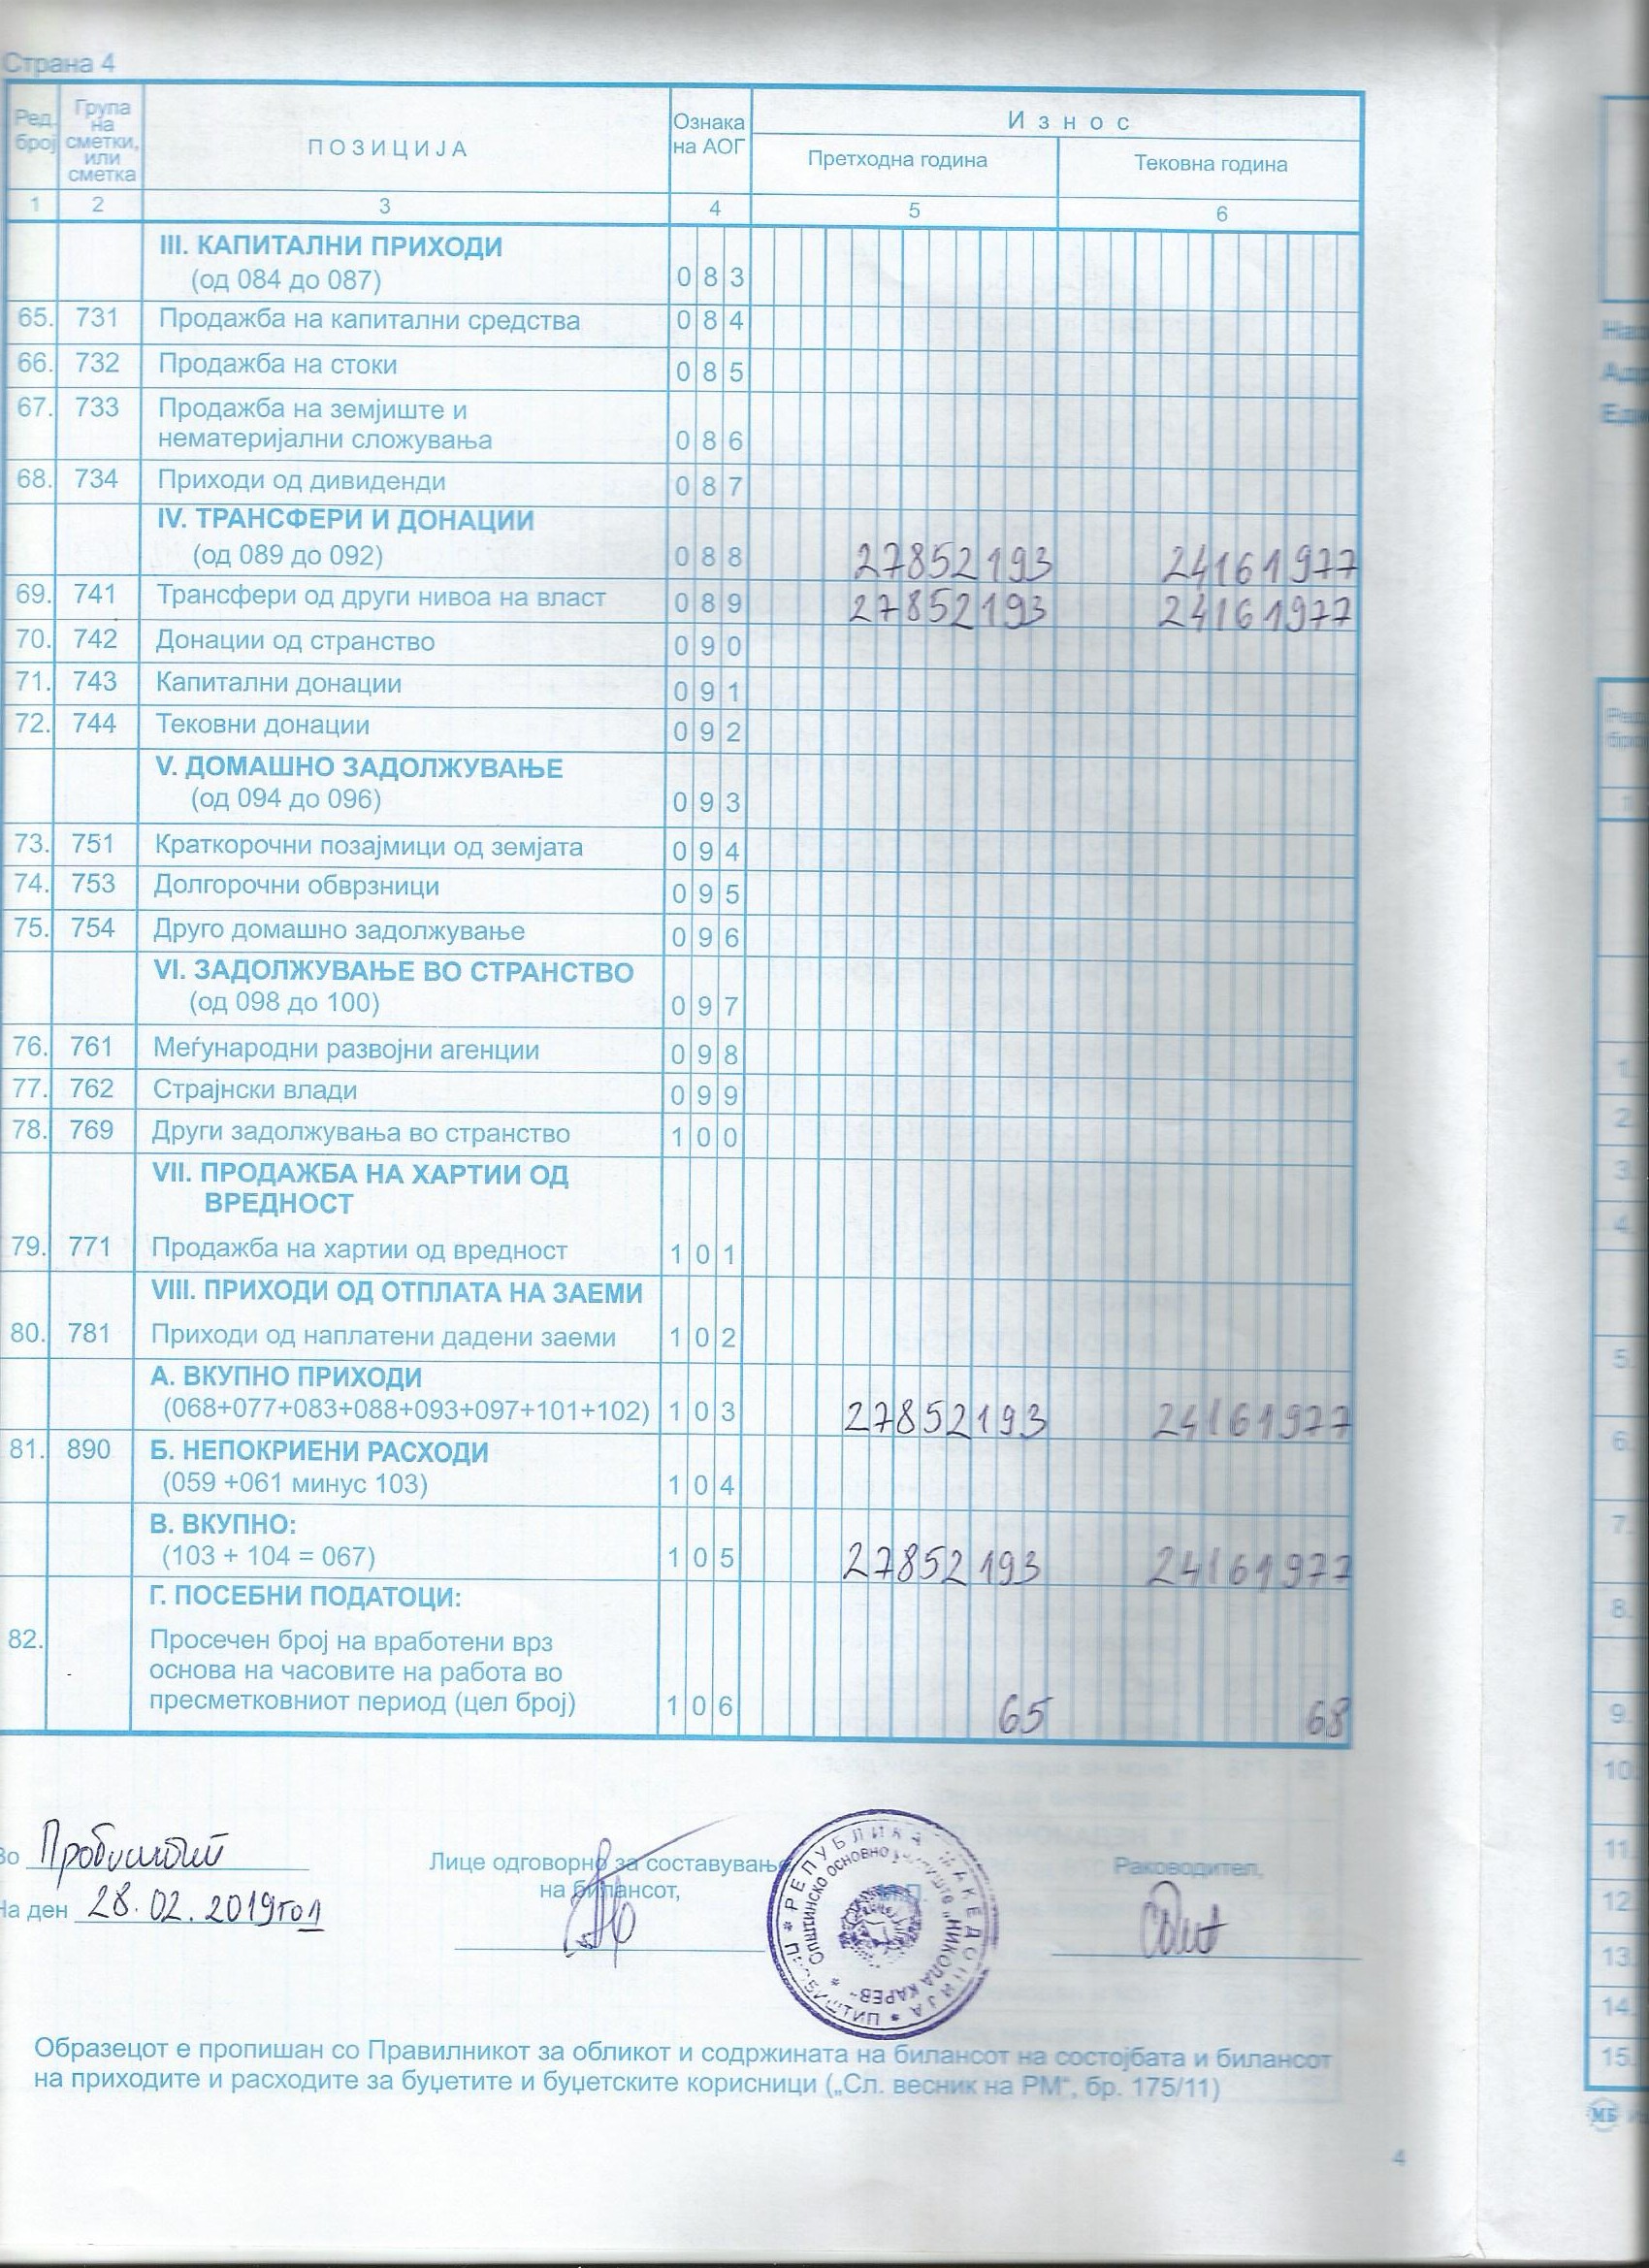 Страна 4
Ред. број
Група на сметки, или сметка
ПОЗИЦИЈА
Ознака на АОГ
Износ
Претходна година
Тековна година
1 2 3 4 5 6
III. КАПИТАЛНИ ПРИХОДИ
(од 084 до 087) 083
65. 731 Продажба на капитални средства 084
66. 732 Продажба на стоки 085
67. 733 Продажба на земјиште и
нематеријални сложувања 086
68. 734 Приходи од дивиденди 087
IV. ТРАНСФЕРИ И ДОНАЦИИ
(од 089 до 092) 088 27852193 24161977
69. 741 Трансфери од други нивоа на власт 089 27852193 24161977
70. 742 Донации од странство 090
71. 743 Капитални донации 091
72. 744 Тековни донации 092
V. ДОМАШНО ЗАДОЛЖУВАЊЕ
(од 094 до 096) 093
73. 751 Краткорочни позајмици од земјата 094
74. 753 Долгорочни обврзници 095
75. 754 Друго домашно задолжување 096
VI. ЗАДОЛЖУВАЊЕ ВО СТРАНСТВО
(од 098 до 100) 097
76. 761 Меѓународни развојни агенции 098
77. 762 Страјнски влади 099
78. 769 Други задолжувања во странство 100
VII. ПРОДАЖБА НА ХАРТИИ ОД
ВРЕДНОСТ
79. 771 Продажба на хартии од вредност 101
VIII. ПРИХОДИ ОД ОТПЛАТА НА ЗАЕМИ
80. 781 Приходи од наплатени дадени заеми 102
А. ВКУПНО ПРИХОДИ
(068+077+083+088+093+097+101+102) 103 27852193 24161977
81. 890 Б. НЕПОКРИЕНИ РАСХОДИ
(059 +061 минус 103) 104
В. ВКУПНО:
(103 + 104 = 067) 105 27852193 24161977
Г. ПОСЕБНИ ПОДАТОЦИ:
82. Просечен број на вработени врз
основа на часовите на работа во
пресметковниот период (цел број) 106 65 68
Во Пробиштип
На ден 28.02.2019год
Лице одговорно за составување
на билансот,
М.П.
Раководител,
РЕПУБЛИКА МАКЕДОНИЈА * ПРОБИШТИП *
ОПШТИНСКО ОСНОВНО УЧИЛИШТЕ "НИКОЛА КАРЕВ"
Образецот е пропишан со Правилникот за обликот и содржината на билансот на состојбата и билансот
на приходите и расходите за буџетите и буџетските корисници („Сл. весник на РМ“, бр. 175/11)
4